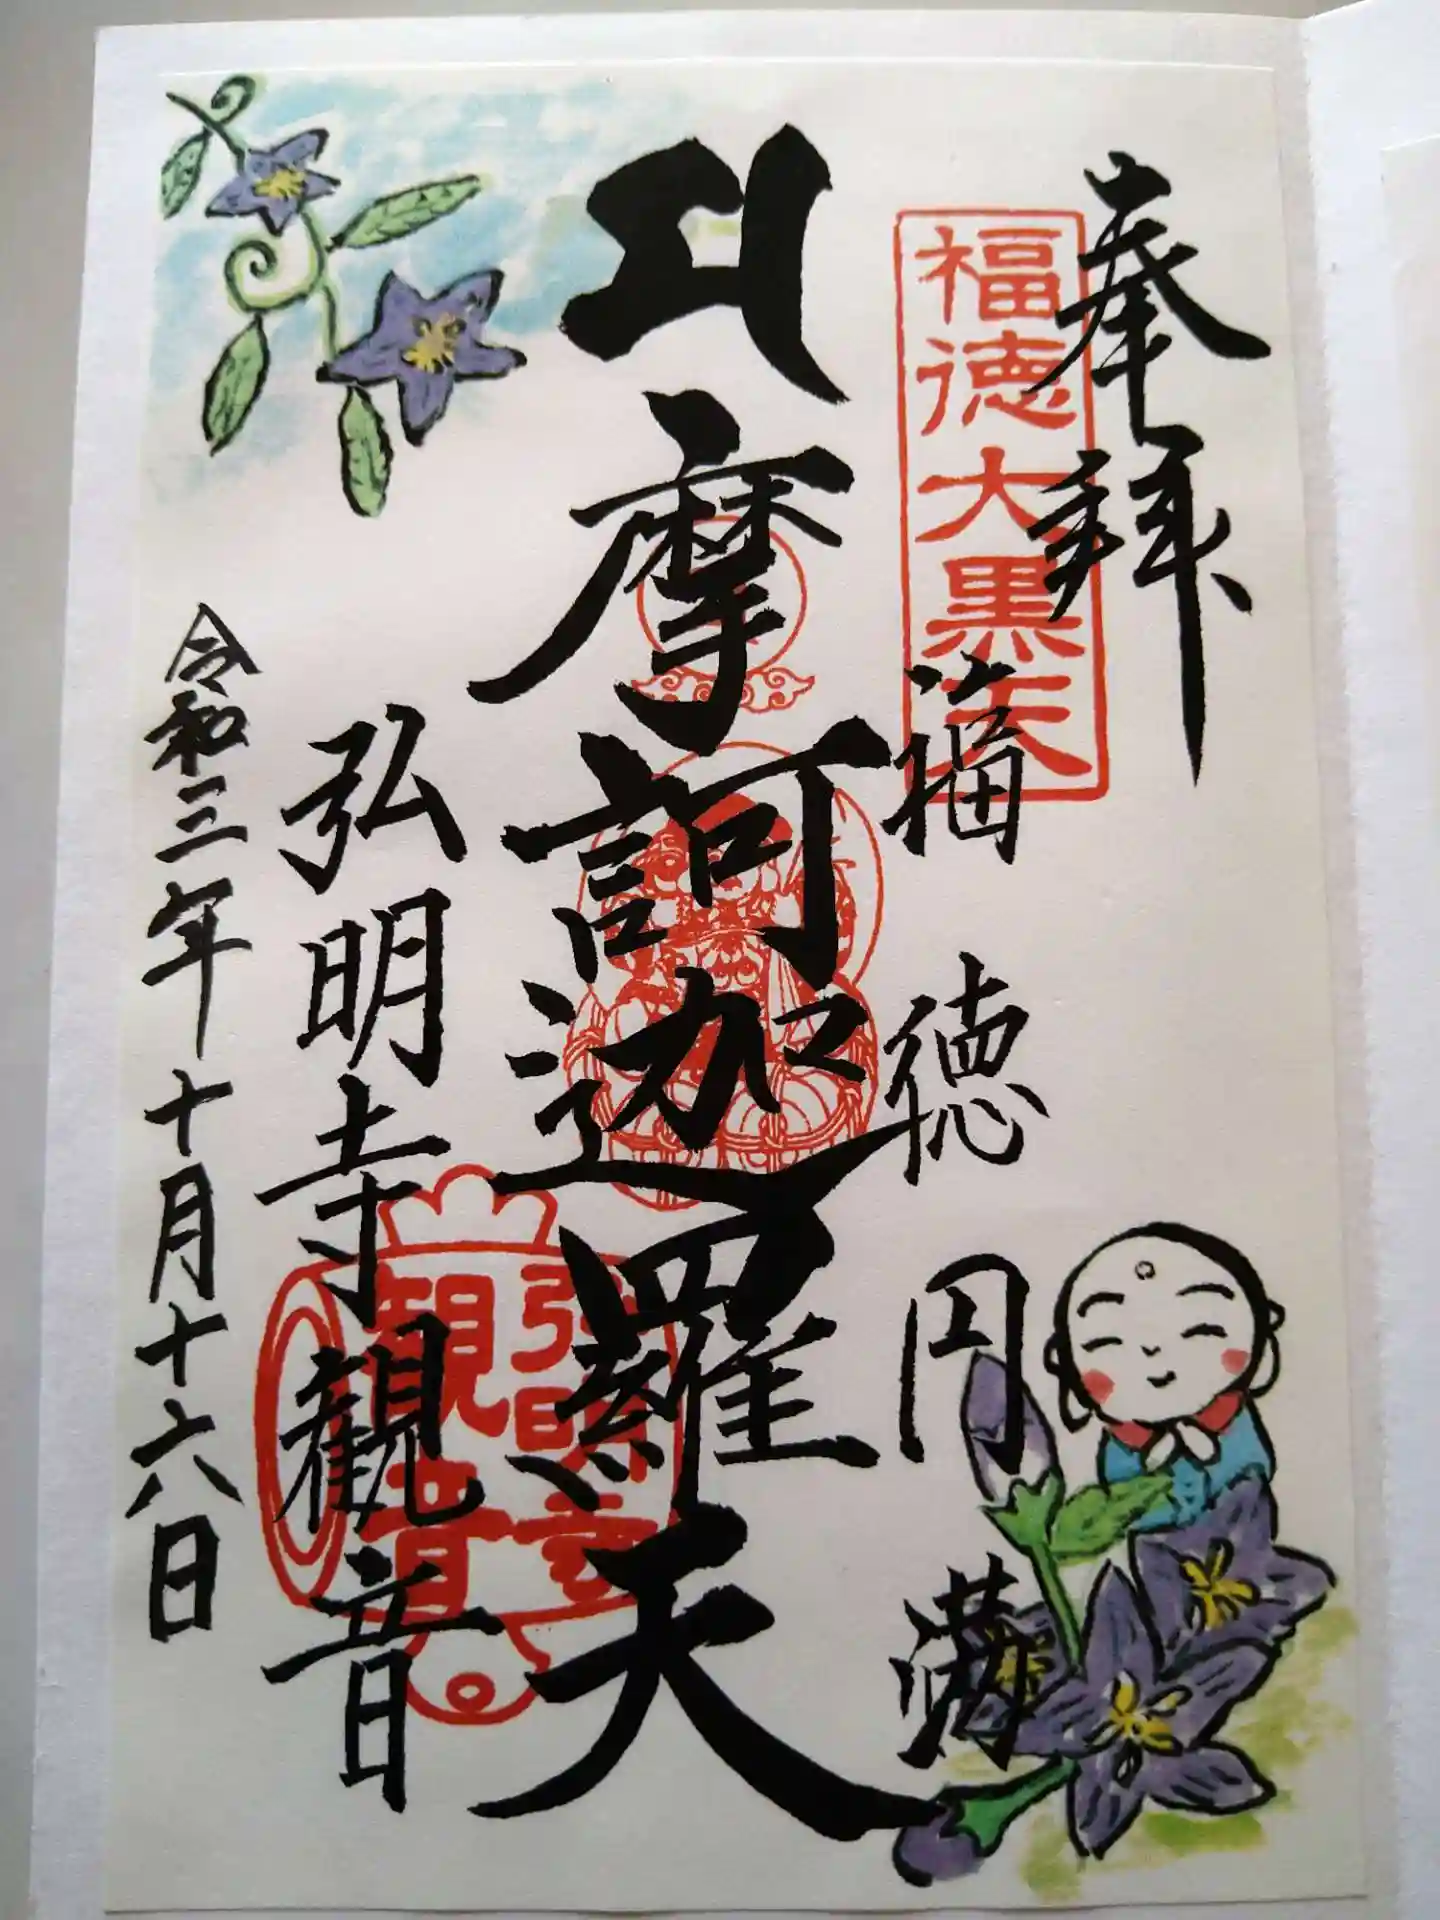 奉拝
福徳大黒天
福徳円満
摩訶迦羅天
弘明寺観音
弘明寺観音
令和三年十月十六日